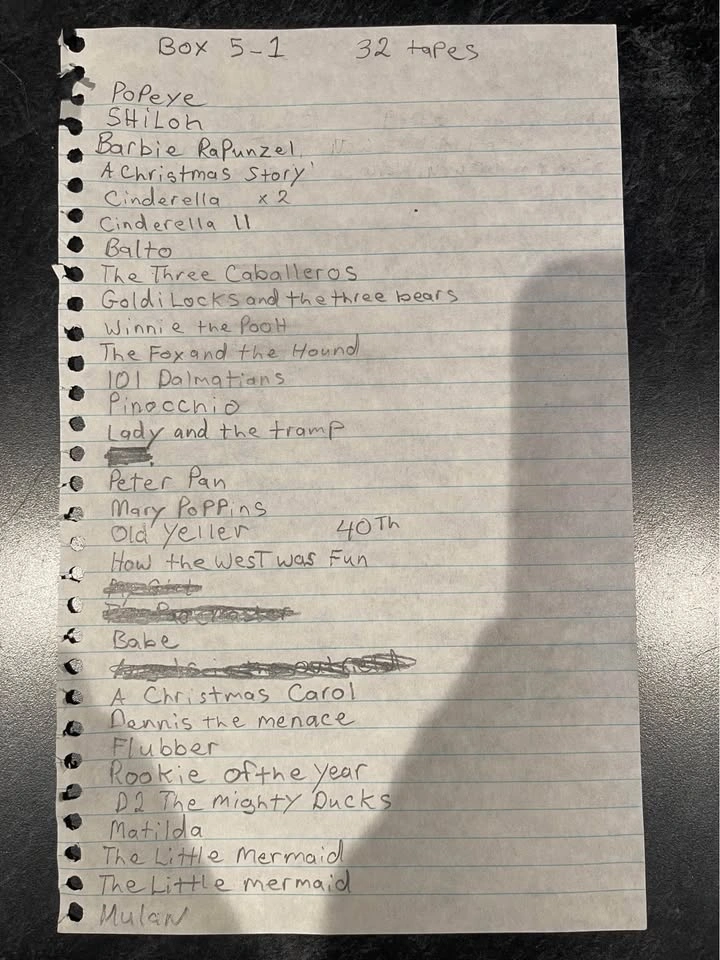 Box 5-1 32 tapes
Popeye
SHiLoh
Barbie Rapunzel
A Christmas Story
Cinderella x 2
Cinderella II
Balto
The Three Caballeros
Goldi Locks and the three bears
Winnie the PooH
The Fox and the Hound
101 Dalmatians
Pinocchio
Lady and the tramp
Peter Pan
Mary Poppins
Old Yeller 40Th
How the WesT was Fun
Babe
A Christmas Carol
Dennis the menace
Flubber
Rookie of the year
D2 The Mighty Ducks
Matilda
The Little Mermaid
The Little mermaid
Mulan